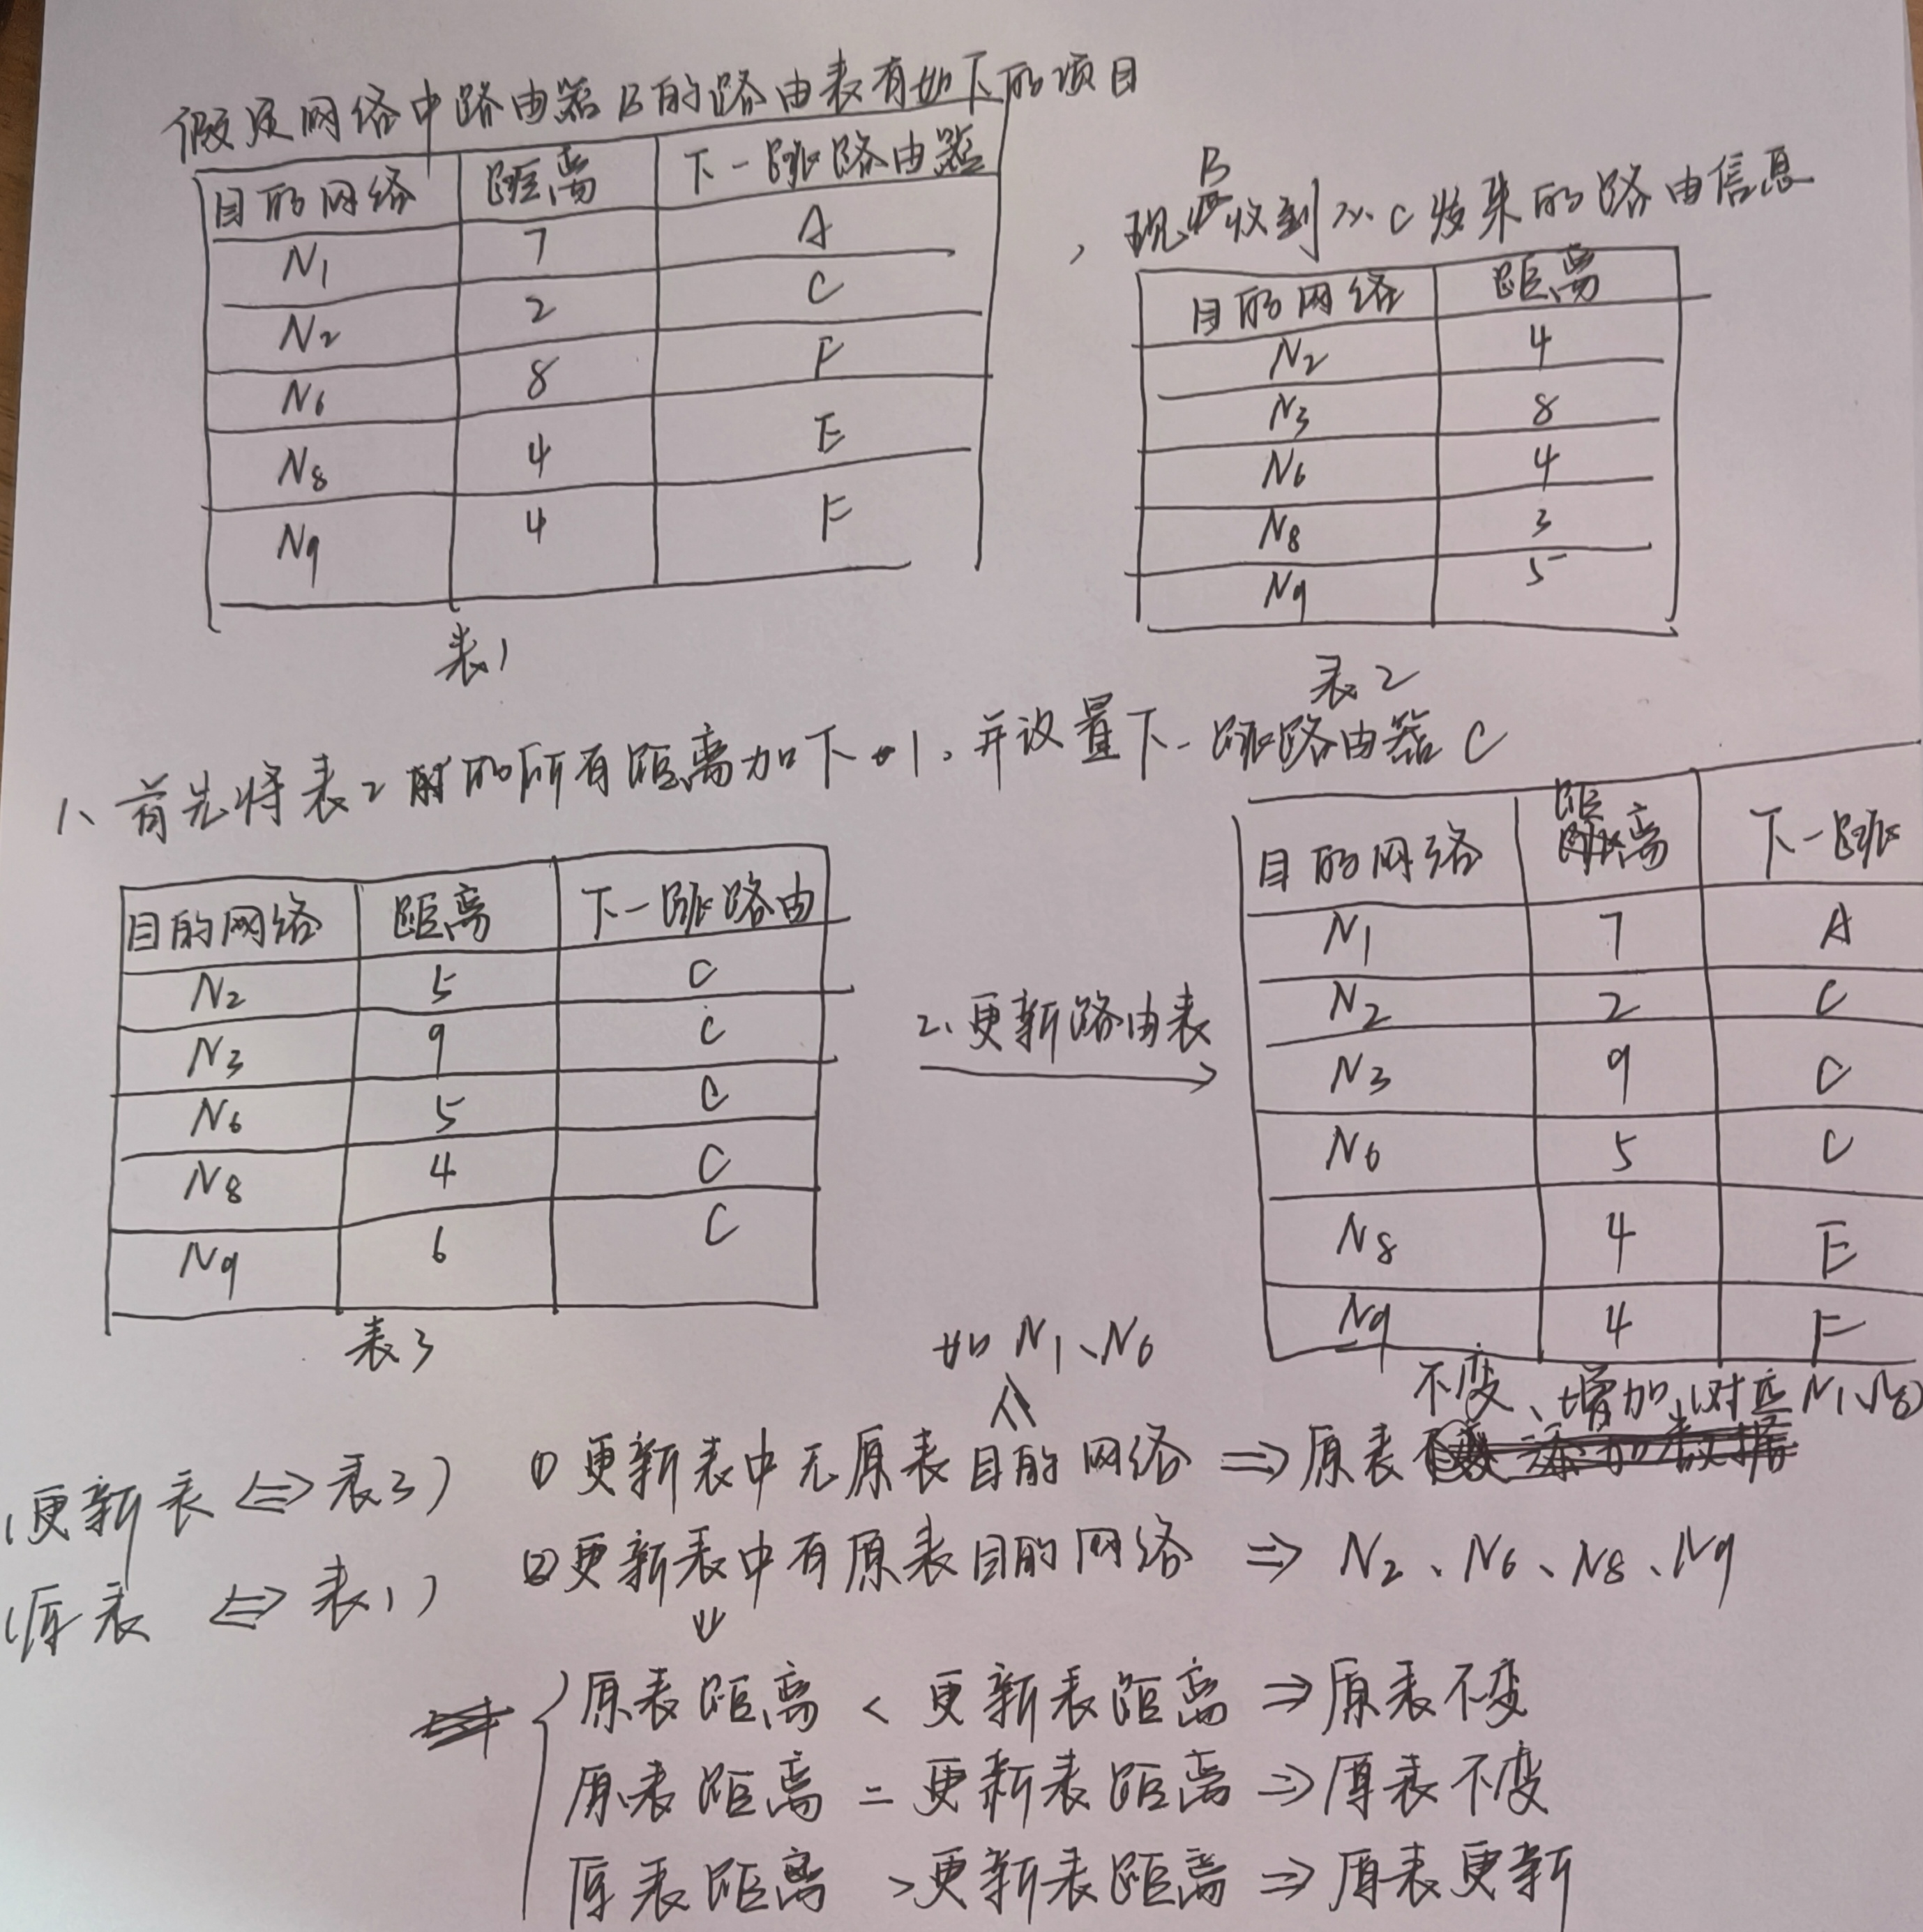 假定网络中路由器B的路由表有如下的项目
目的网络 距离 下一跳路由器
N1 7 A
N2 2 C
N6 8 F
N8 4 E
N9 4 F
表1
,现B收到从C发来的路由信息
目的网络 距离
N2 4
N3 8
N6 4
N8 3
N9 5
表2
1、首先将表2的所有距离加下1,并设置下一跳路由器C
目的网络 距离 下一跳路由
N2 5 C
N3 9 C
N6 5 C
N8 4 C
N9 6 C
表3
2、更新路由表
目的网络 距离 下一跳
N1 7 A
N2 2 C
N3 9 C
N6 5 C
N8 4 E
N9 4 F
如N1、N6
不变、增加(对应N1、
(更新表⇔表3)
(原表⇔表1)
①更新表中无原表目的网络⇒原表
②更新表中有原表目的网络⇒N2、N6、N8、N9
⇓
原表距离<更新表距离⇒原表不变
原表距离=更新表距离⇒原表不变
原表距离>更新表距离⇒原表更新